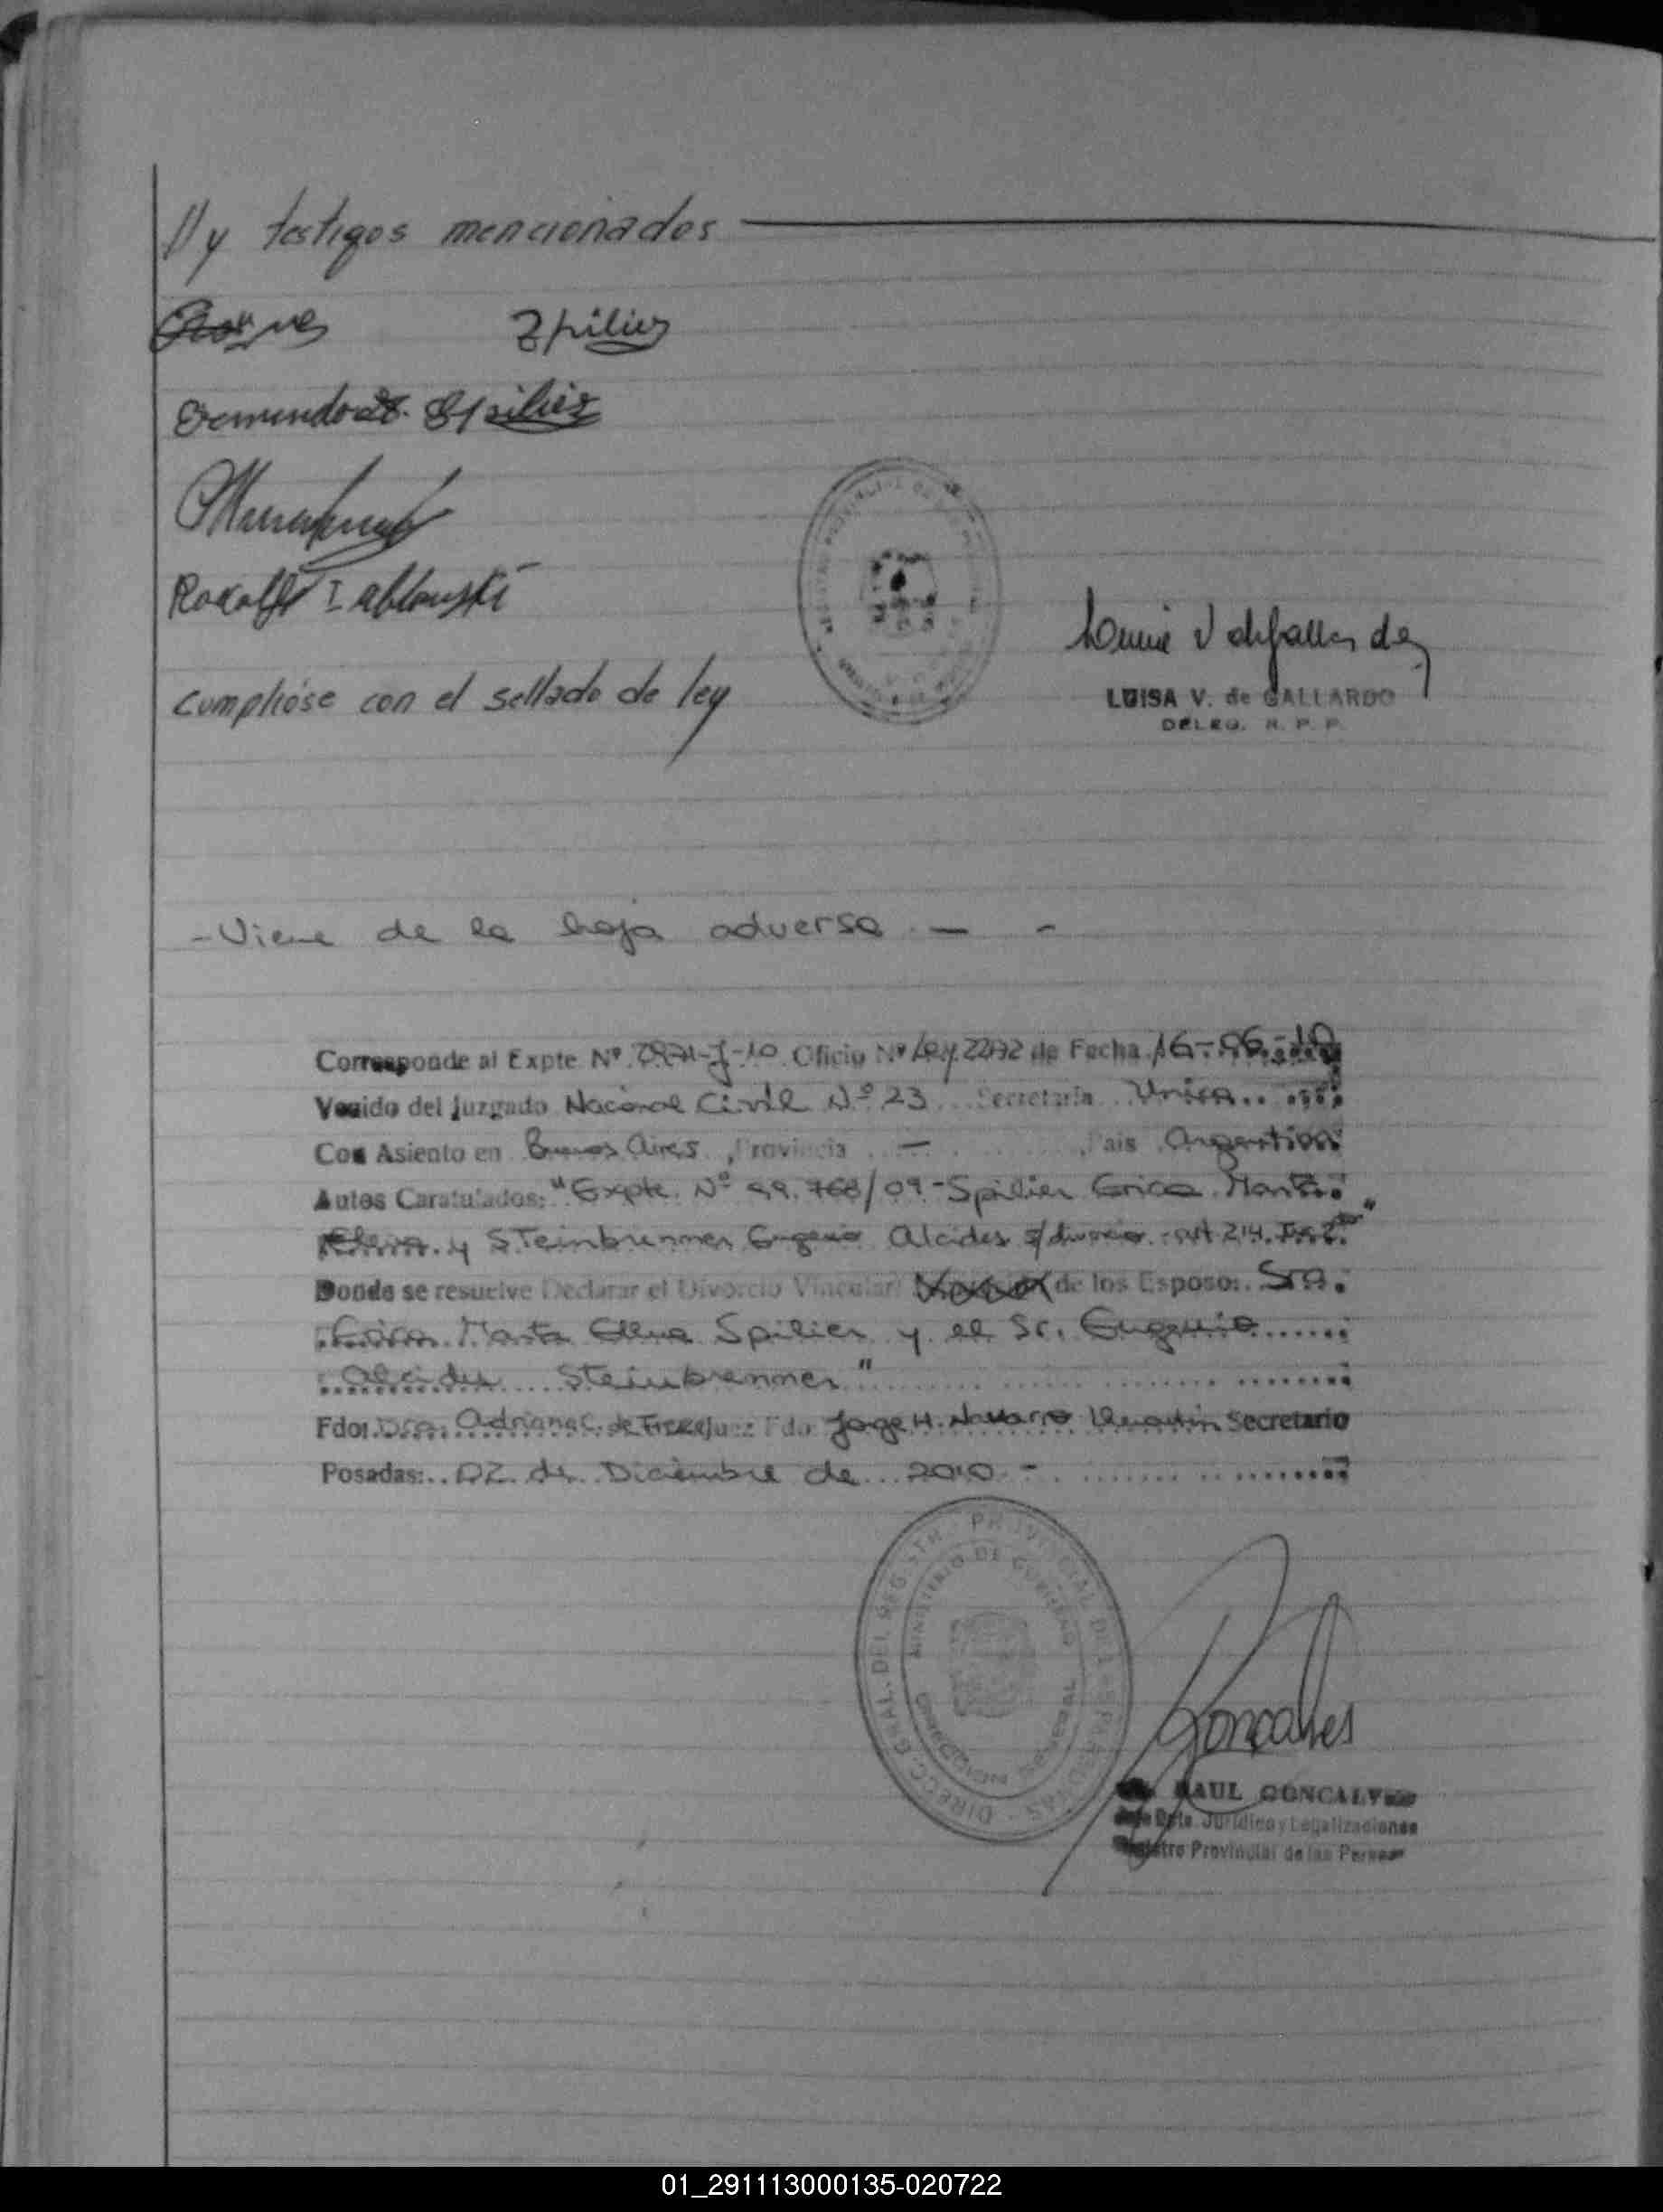 // y testigos mencionados
Spilier
Cumplióse con el sellado de ley
LUISA V. de GALLARDO
DELEG. R. P. P.
- Viene de la hoja adversa. - -
Corresponde al Expte Nº Oficio Nº Ley 22172 de Fecha 16-06-10
Venido del Juzgado Nacional Civil Nº 23 Secretaria Unica
Con Asiento en Buenos Aires, Provincia - Pais Argentina
Autos Caratulados: "Expte. Nº 99.768/09 - Spilier Erica Marta
Elena y Steinbrenner Eugenio Alcides s/divorcio - art 214. Inc 2º"
Donde se resuelve Declarar el Divorcio Vincular de los Esposos: Sra.
Erica Marta Elena Spilier y el Sr. Eugenio
Alcides Steinbrenner"
Fdo: Dra. Adriana C. de Juez Fdo Jorge H. Navarro Secretario
Posadas: 02 de Diciembre de 2010 -
DIRECC. GRAL. DEL REGISTRO PROVINCIAL DE LAS PERSONAS
MINISTERIO DE GOBIERNO
Goncalves
RAUL GONCALVES
Jefe Dpto. Jurídico y Legalizaciones
Registro Provincial de las Personas
01_291113000135-020722